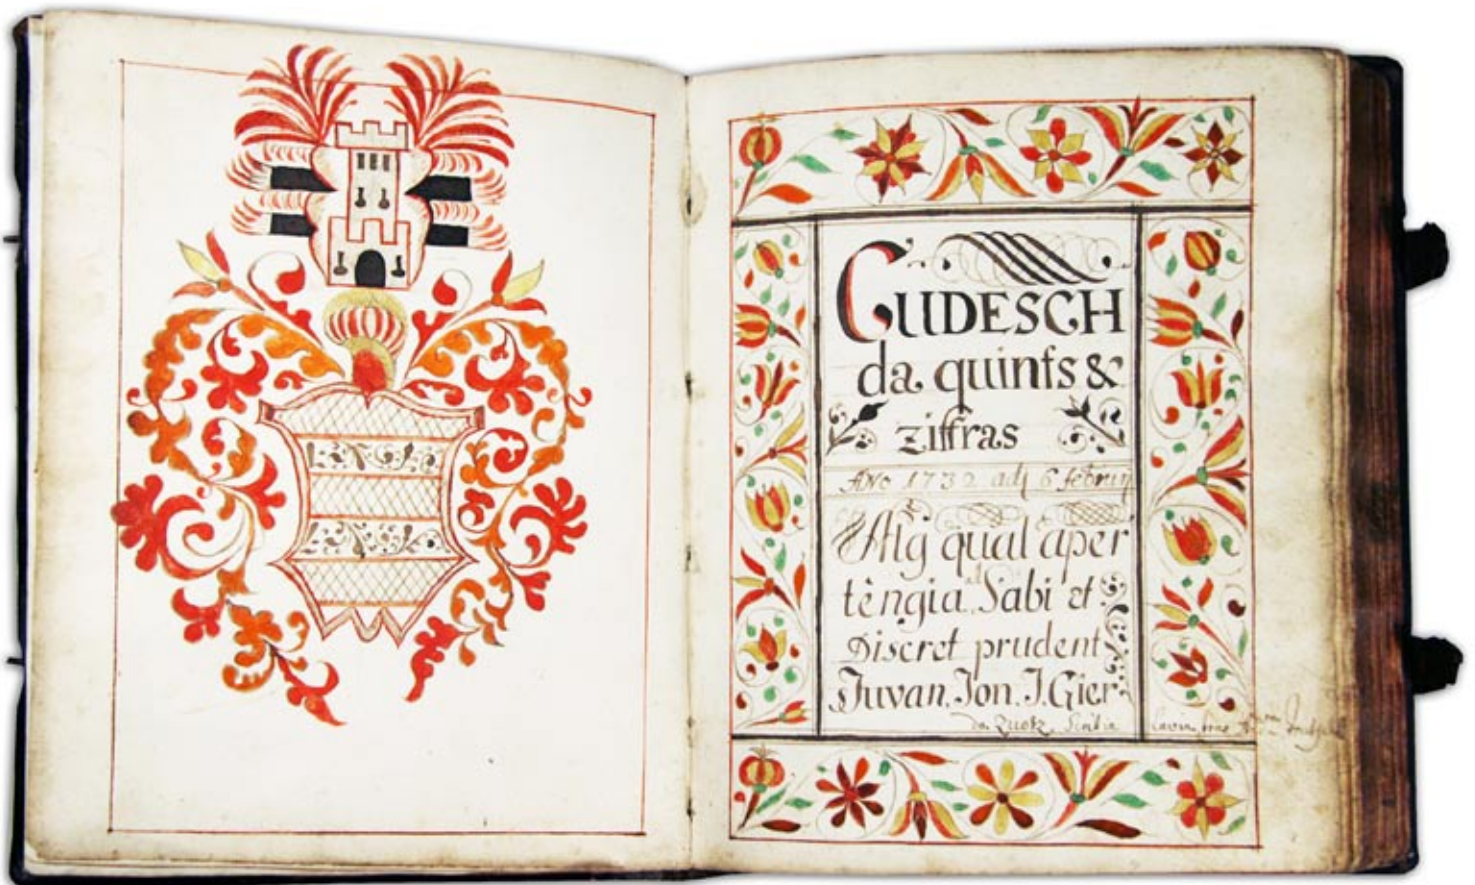 CUDESCH
da quints &
ziffras
Año 1732 adj 6 februrj
Alg qual aper
tèngia Sabi et
Discret prudent
Juvan. Jon. J. Gier
da Zuotz